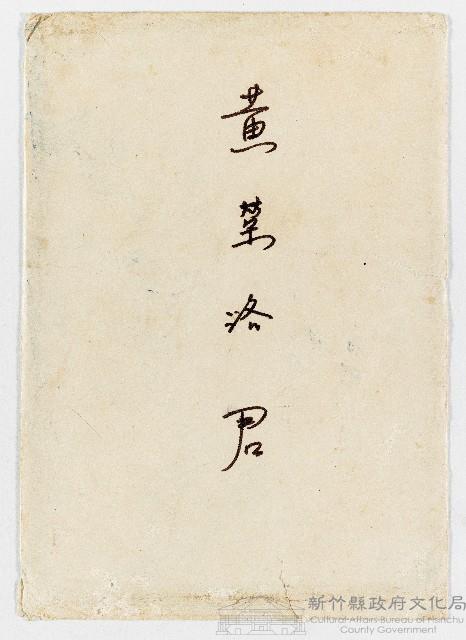 黄荣洛君
新竹縣政府文化局
Cultural Affairs Bureau of Hsinchu
County Government